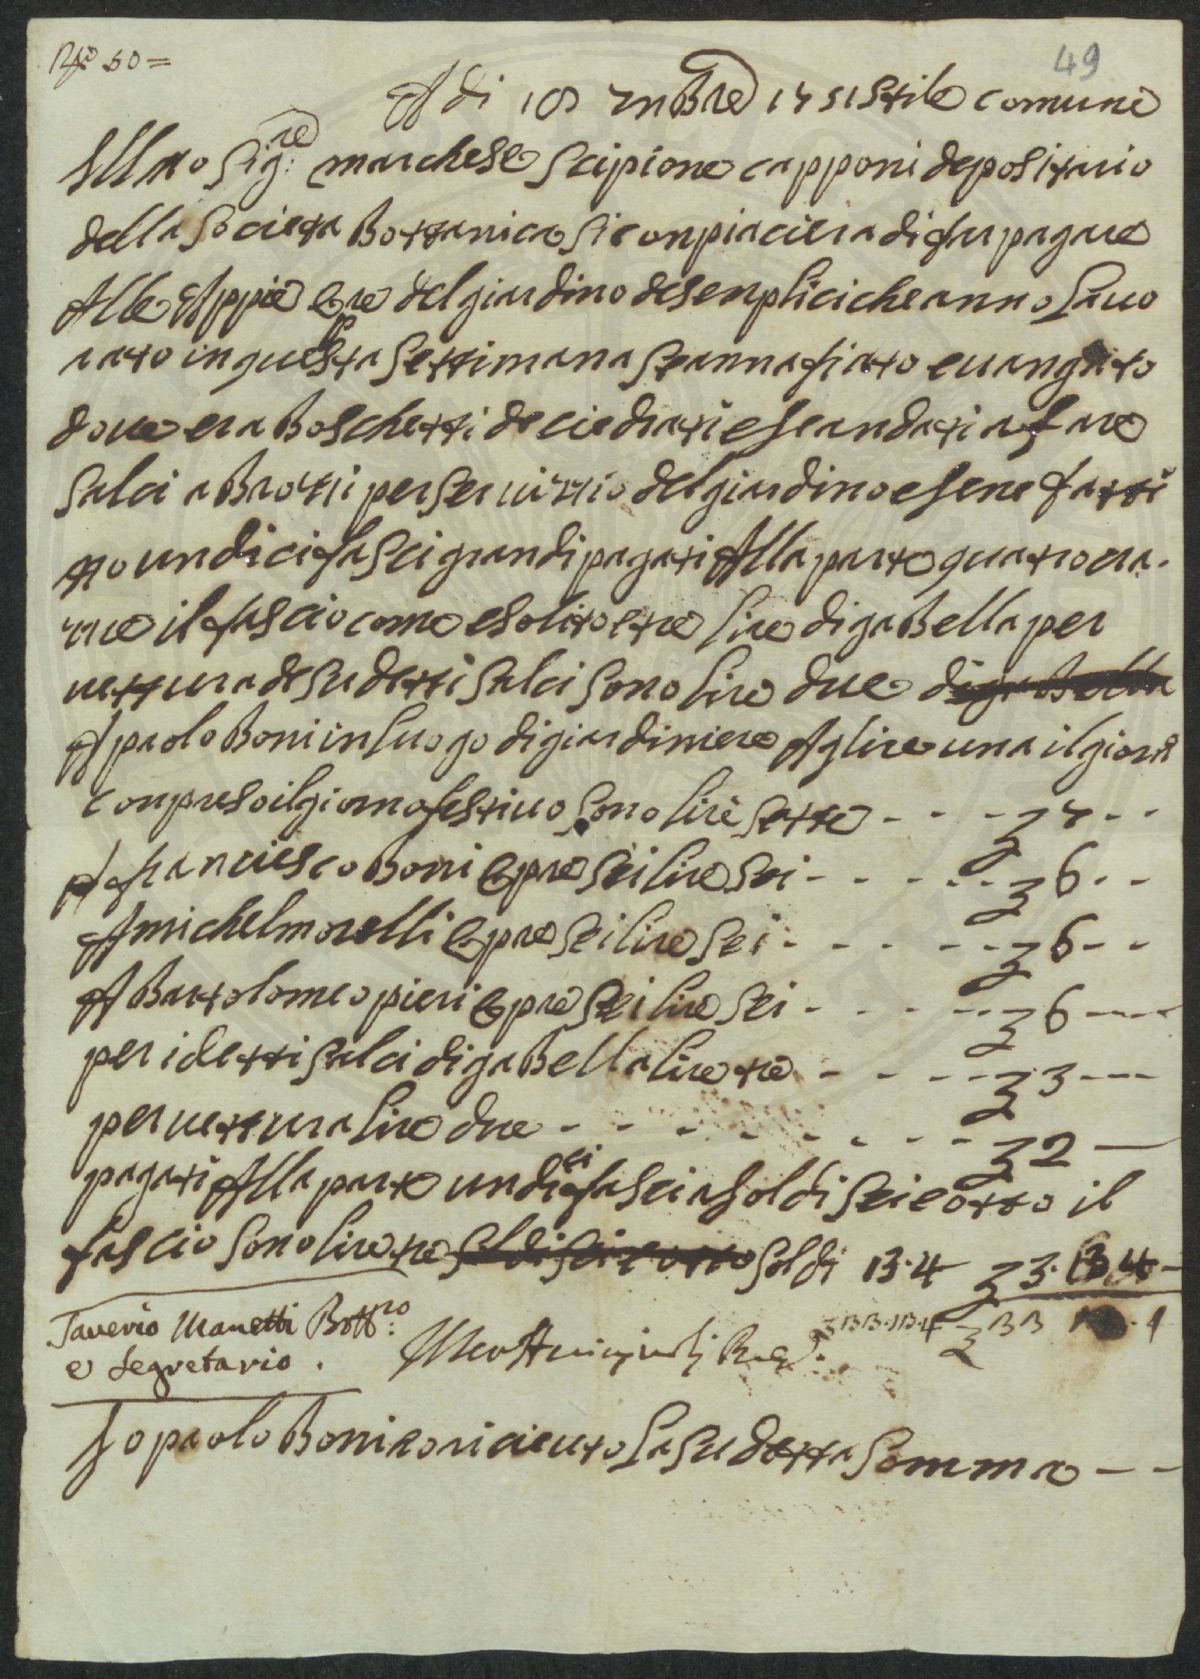 No 50 =
49
A di 18 xmbre 1751 stile comune
Illmo Sig:re marchese Scipione capponi depositario
della Societa Bottanica si conpiaciera di far pagare
Alle Appie Opre del giardino de senplici che anno lavo
rato in questa settimana Se annafiato e vangato
dove era Boschetti de ciedrati e se andati a fare
salci a Brozzi per servizio del giardino e sene fatti
no undici fasci grandi pagati Alla parte quatro cra.
zie il fascio come e solito e tre lire di gabella per
vettura de sudetti salci sono lire due di gabella
A paolo Boni in luogo di giardiniere A lire una il giorno
conpreso il giorno festivo sono lire sette - - - 7 - -
A franciesco Boni Opre sei lire sei - - - - - 6 - -
A michel morelli Opre sei lire sei - - - - - 6 - -
A Bartolomeo pieri Opre sei lire sei - - - - - 6 - -
per i detti salci di gabella lire tre - - - - - 3 - -
per vettura lire due - - - - - - - - 2 -
pagati Alla parte undici fasci a soldi sei e otto il
fascio sono lire tre soldi sei e otto soldi 13.4 3.13.4 -
Saverio Manetti Bott:co
e Segretario. 33.13.4 33
Io paolo Boni o riceuto la sudetta somma - -